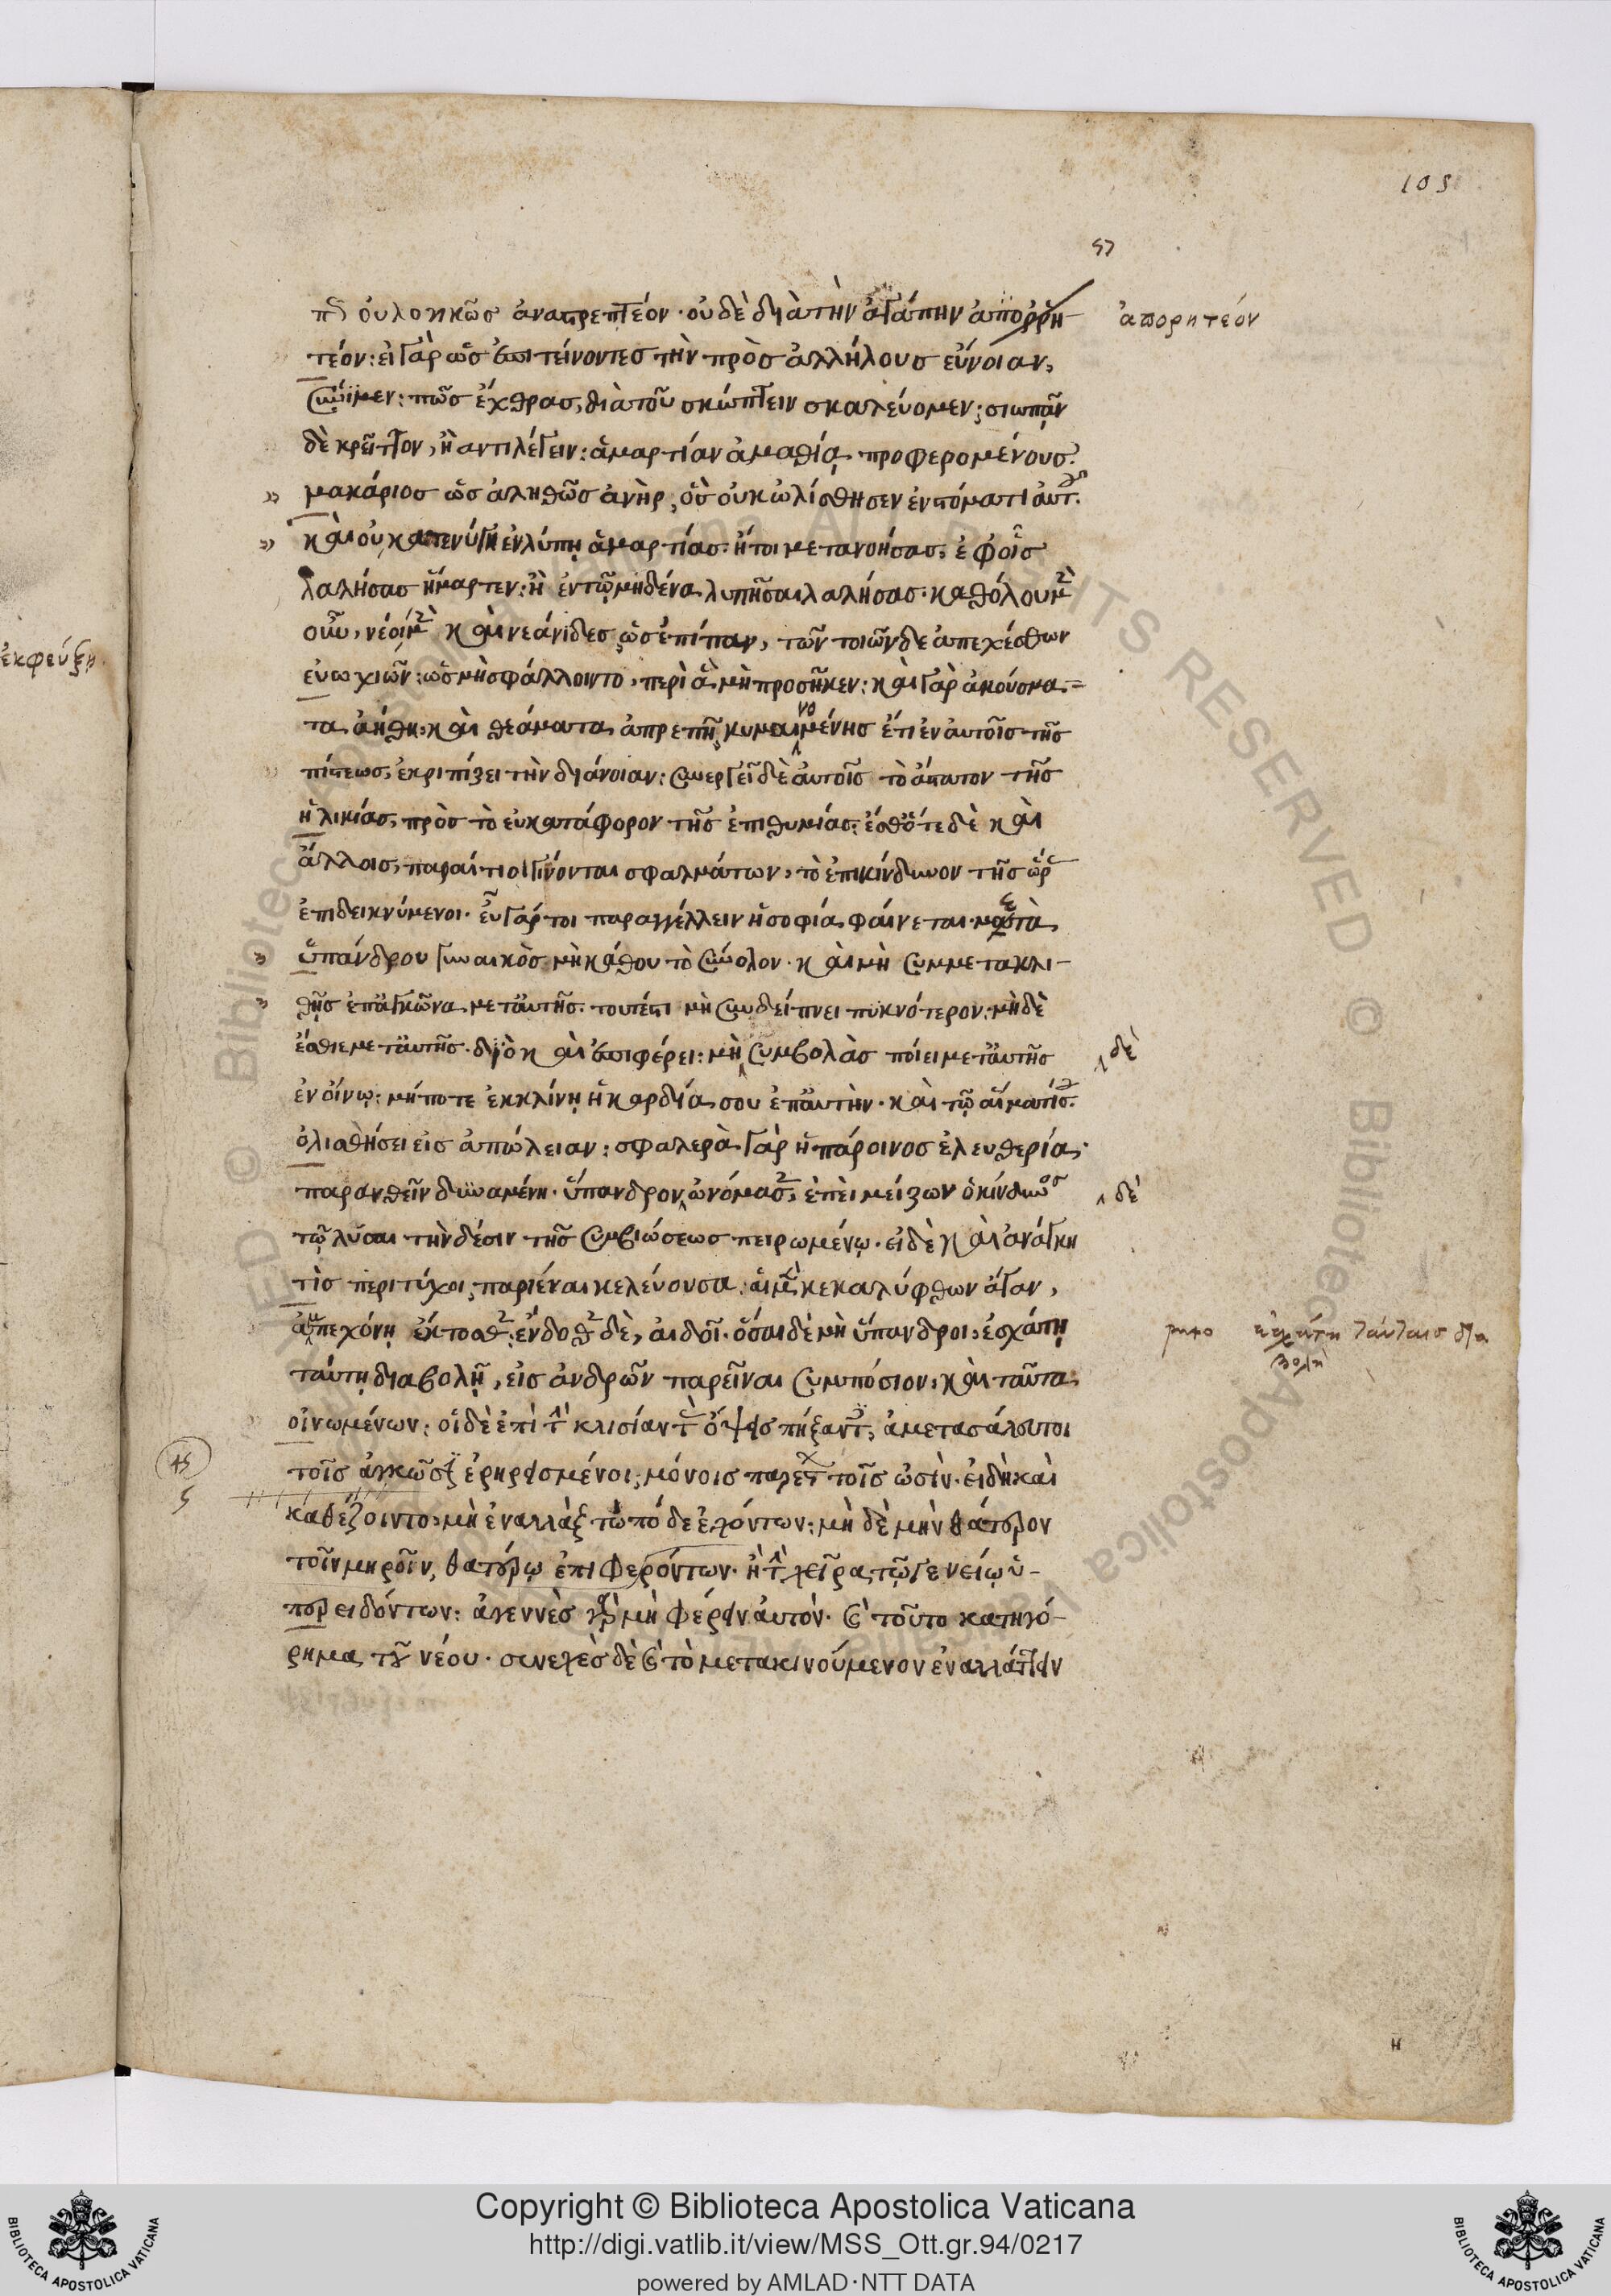 105
57
οὐ λογικῶς ἀνατρεπτέον· οὐδὲ διὰ τὴν ἀγάπην ἀπορρη- ἀπορητέον
τέον: εἰ γὰρ ὡς ἐπιτείνοντες τὴν πρὸς ἀλλήλους εὔνοιαν,
συνίμεν: πῶς ἔχθρας, διὰ τοῦ σκώπτειν σκαλεύομεν; σιωπᾶν
δὲ κρεῖττον, ἢ ἀντιλέγειν: ἁμαρτίαν ἀμαθίᾳ προφερομένους.
» μακάριος ὡς ἀληθῶς ἀνὴρ, ὃς οὐκ ὠλίσθησεν ἐν στόματι αὐτοῦ.
» καὶ οὐ κατενύγη ἐν λύπῃ ἁμαρτίας· ἤτοι μετανοήσας, ἐφ' οἷς
λαλήσας ἥμαρτεν: ἢ ἐν τῷ μηδένα λυπῆσαι λαλήσας· καθόλου μὲν
οὖν, νέοι μὲν καὶ νεάνιδες, ὡς ἐπίπαν, τῶν τοιῶνδε ἀπεχέσθων
ἐκφεύξῃ
εὐωχιῶν: ὡς μὴ σφάλλοιντο, περὶ ἃ μὴ προσῆκεν: καὶ γὰρ ἀκούσμα-
τα ἀήθη· καὶ θεάματα ἀπρεπῆ, κυμαινομένης ἔτι ἐν αὐτοῖς τῆς
πίστεως, ἐκριπίζει τὴν διάνοιαν: συνεργεῖ δὲ αὐτοῖς τὸ ἄστατον τῆς
ἡλικίας, πρὸς τὸ εὐκατάφορον τῆς ἐπιθυμίας· ἔσθ' ὅτε δὲ καὶ
ἄλλοις, παραίτιοι γίνονται σφαλμάτων, τὸ ἐπικίνδυνον τῆς ὥρας
ἐπιδεικνύμενοι· εὖ γάρ τοι παραγγέλλειν ἡ σοφία φαίνεται· μετὰ
» ὑπάνδρου γυναικὸς μὴ κάθου τὸ σύνολον· καὶ μὴ συμμετακλι-
» θῇς ἐπ' ἀγκῶνα μετ' αὐτῆς· τουτέστι μὴ συνδείπνει πυκνότερον· μηδὲ
ἔσθιε μετ' αὐτῆς· διὸ καὶ ἐπιφέρει: μὴ συμβολὰς ποίει μετ' αὐτῆς δέ
ἐν οἴνῳ: μήποτε ἐκκλίνῃ ἡ καρδία σου ἐπ' αὐτὴν· καὶ τῷ αἵματί σου
ὀλισθήσει εἰς ἀπώλειαν: σφαλερὰ γὰρ ἡ πάροινος ἐλευθερία·
παρανθεῖν δυναμένη· ὕπανδρον, ὠνόμασεν, ἐπεὶ μείζων ὁ κίνδυνος δέ
τῷ λῦσαι τὴν δέσιν τῆς συμβιώσεως πειρωμένῳ· εἰ δὲ καὶ ἀνάγκη
τὶς περιτύχοι, παριέναι κελεύουσα: αἱ μὲν κεκαλύφθων ἄγαν,
ἀμπεχόνῃ ἔκτοσθεν: ἔνδοθεν δὲ, αἰδοῖ· ὅσαι δὲ μὴ ὕπανδροι: ἐσχάτη ἐσχάτη ταύταις δια
βολὴ
ταύτῃ διαβολῇ, εἰς ἀνδρῶν παρεῖναι συμπόσιον: καὶ ταῦτα
οἰνωμένων: οἱ δὲ ἐπὶ τὴν κλισίαν τὰς ὄψεις πήξαντες, ἀμετασάλευτοι
τοῖς ἀγκῶσιν ἐρηρεισμένοι, μόνοις παρέστων τοῖς ὠσὶν· εἰ δὴ καὶ
καθέζοιντο: μὴ ἐναλλὰξ τὼ πόδε ἐχόντων: μὴ δὲ μὴν θάτερον
τοῖν μηροῖν, θατέρῳ ἐπιφερόντων· ἢ τὴν χεῖρα τῷ γενείῳ ὑ-
περειδόντων: ἀγεννὲς γὰρ μὴ φέρειν αὐτὸν· καὶ τοῦτο κατηγό-
ρημα τοῦ νέου· συνεχὲς δὲ καὶ τὸ μετακινούμενον ἐναλλάττειν
Copyright © Biblioteca Apostolica Vaticana
http://digi.vatlib.it/view/MSS_Ott.gr.94/0217
powered by AMLAD·NTT DATA